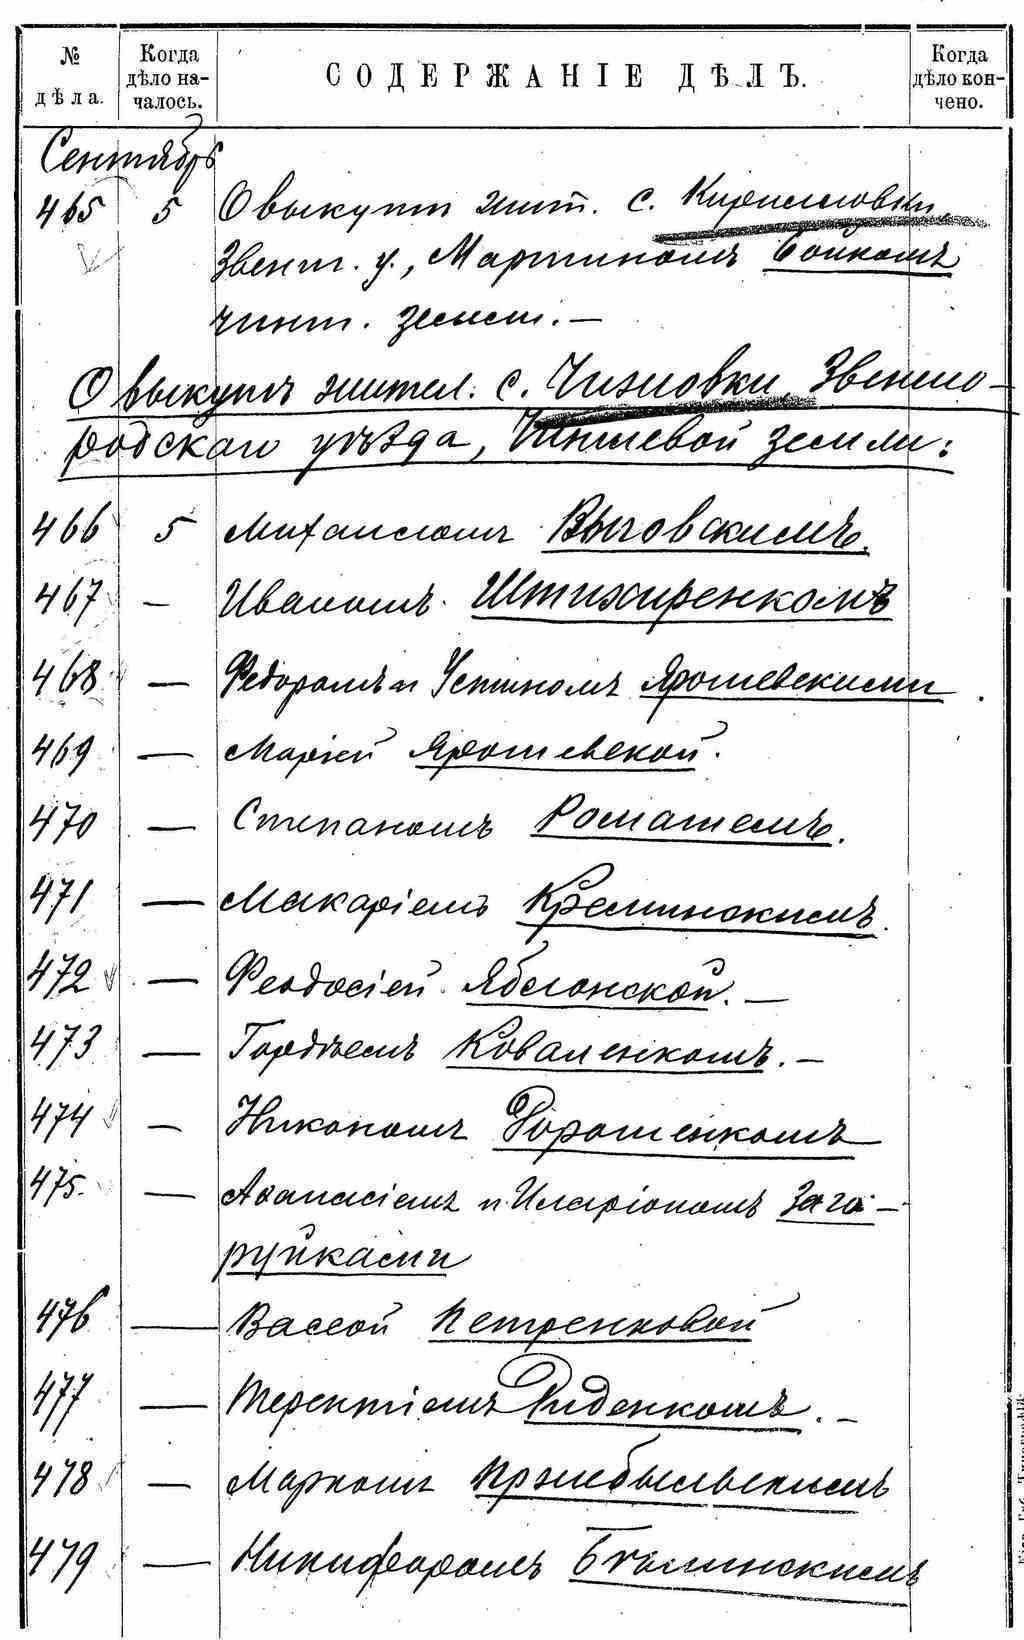 № дѣла.
Когда дѣло началось.
СОДЕРЖАНІЕ ДѢЛЪ.
Когда дѣло кончено.
Сентябрь
465 5 О выкупѣ жит. с. Кирилловки,
Звениг. у., Мартиномъ Бойкомъ
чинш. земли. —
О выкупѣ жител. с. Чижовки, Звениго-
родскаго уѣзда, Чиншевой земли:
466 5 Михаиломъ Выговскимъ.
467 — Иваномъ Штихиренкомъ
468 — Федоромъ и Устиномъ Ярошевскими
469 — Маріей Ярошевской.
470 — Степаномъ Ромашемъ.
471 — Макаріемъ Креминскимъ.
472 — Феодосіей Яблонской. —
473 — Гордѣемъ Коваленкомъ. —
474 — Никономъ Дорошенкомъ
475. — Афанасіемъ и Иларіономъ Заго-
руйками
476 — Вассой Петренковой
477 — Терентіемъ Руденкомъ. —
478 — Маркомъ Пржебыльскимъ
479 — Никифоромъ Бѣлинскимъ